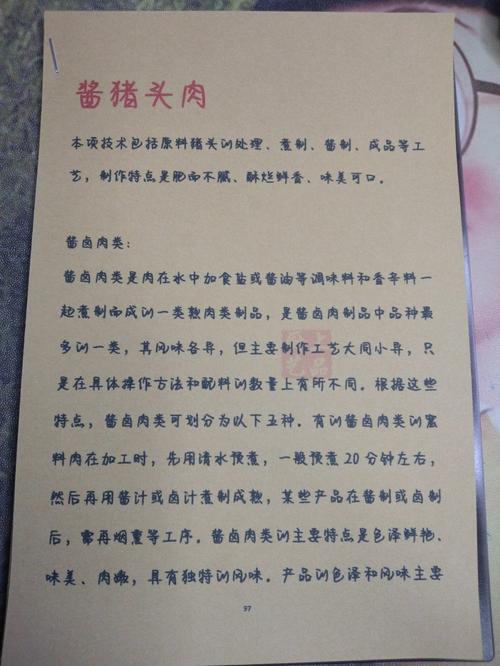 酱猪头肉
本项技术包括原料猪头的处理、煮制、酱制、成品等工
艺，制作特点是肥而不腻、酥烂鲜香、味美可口。
酱卤肉类：
酱卤肉类是肉在水中加食盐或酱油等调味料和香辛料一
起煮制而成的一类熟肉类制品，是酱卤肉制品中品种最
多的一类，其风味各异，但主要制作工艺大同小异，只
是在具体操作方法和配料的数量上有所不同。根据这些
特点，酱卤肉类可划分为以下五种。有的酱卤肉类的需
料肉在加工时，先用清水预煮，一般预煮20分钟左右，
然后再用酱汁或卤汁煮制成熟，某些产品在酱制或卤制
后，需再烟熏等工序。酱卤肉类的主要特点是色泽鲜艳、
味美、肉嫩，具有独特的风味。产品的色泽和风味主要
97